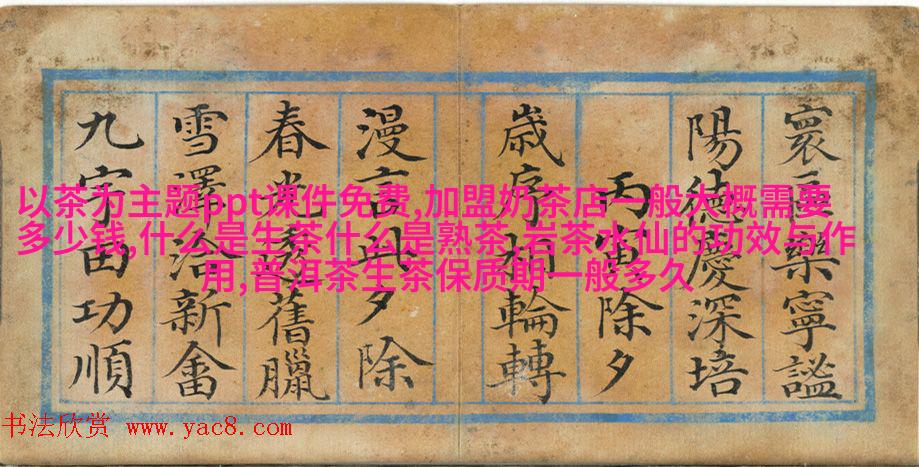 以茶为主题ppt课件免费,加盟奶茶店一般大概需要
多少钱,什么是生茶什么是熟茶,岩茶水仙的功效与作
用,普洱茶生茶保质期一般多久
寰樂寧謐
陽德慶深培
丙寅除夕
歲序初輪轉
漫言此夕除
春光透舊臘
雪澤洽新畬
九宇田功順
书法欣赏 www.yac8.com